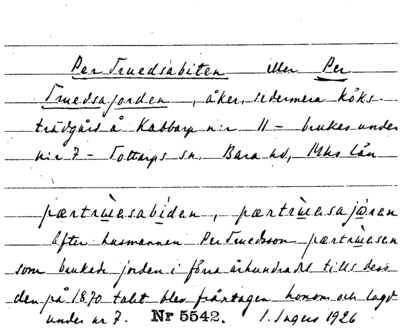 Per Truedsabiten eller Per
Truedsajorden, åker, sedermera köks-
trädgård å Kabbarp n:r 11 – brukas under
n:r 7 – Tottarps sn. Bara hd, Mhs län
pærtrùəsabìdən, pærtrùəsajǿrən
Efter husmannen Per Truedsson pærtrùəsən
som brukade jorden i förra århundradet tills dess
den på 1870 talet blev fråntagen honom och lagd
under nr 7. Nr 5542. I. Ingers 1926